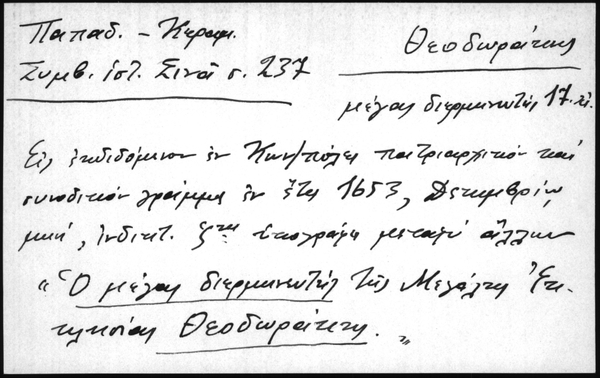 Παπαδ. – Κεραμ.
Συμβ. ἱστ. Σινᾶ σ. 237
Θεοδωράκης
μέγας διερμηνευτής 17. αἰ.
Εἰς ἐκδιδόμενον ἐν Κων/πόλει πατριαρχικόν καί
συνοδικόν γράμμα ἐν ἔτει 1653, Δεκεμβρίῳ
μηνί, ἰνδικτ. ζης ὑπογράφει μεταξύ ἄλλων
« Ὁ μέγας διερμηνευτής τῆς Μεγάλης Ἐκ-
κλησίας Θεοδωράκης. »